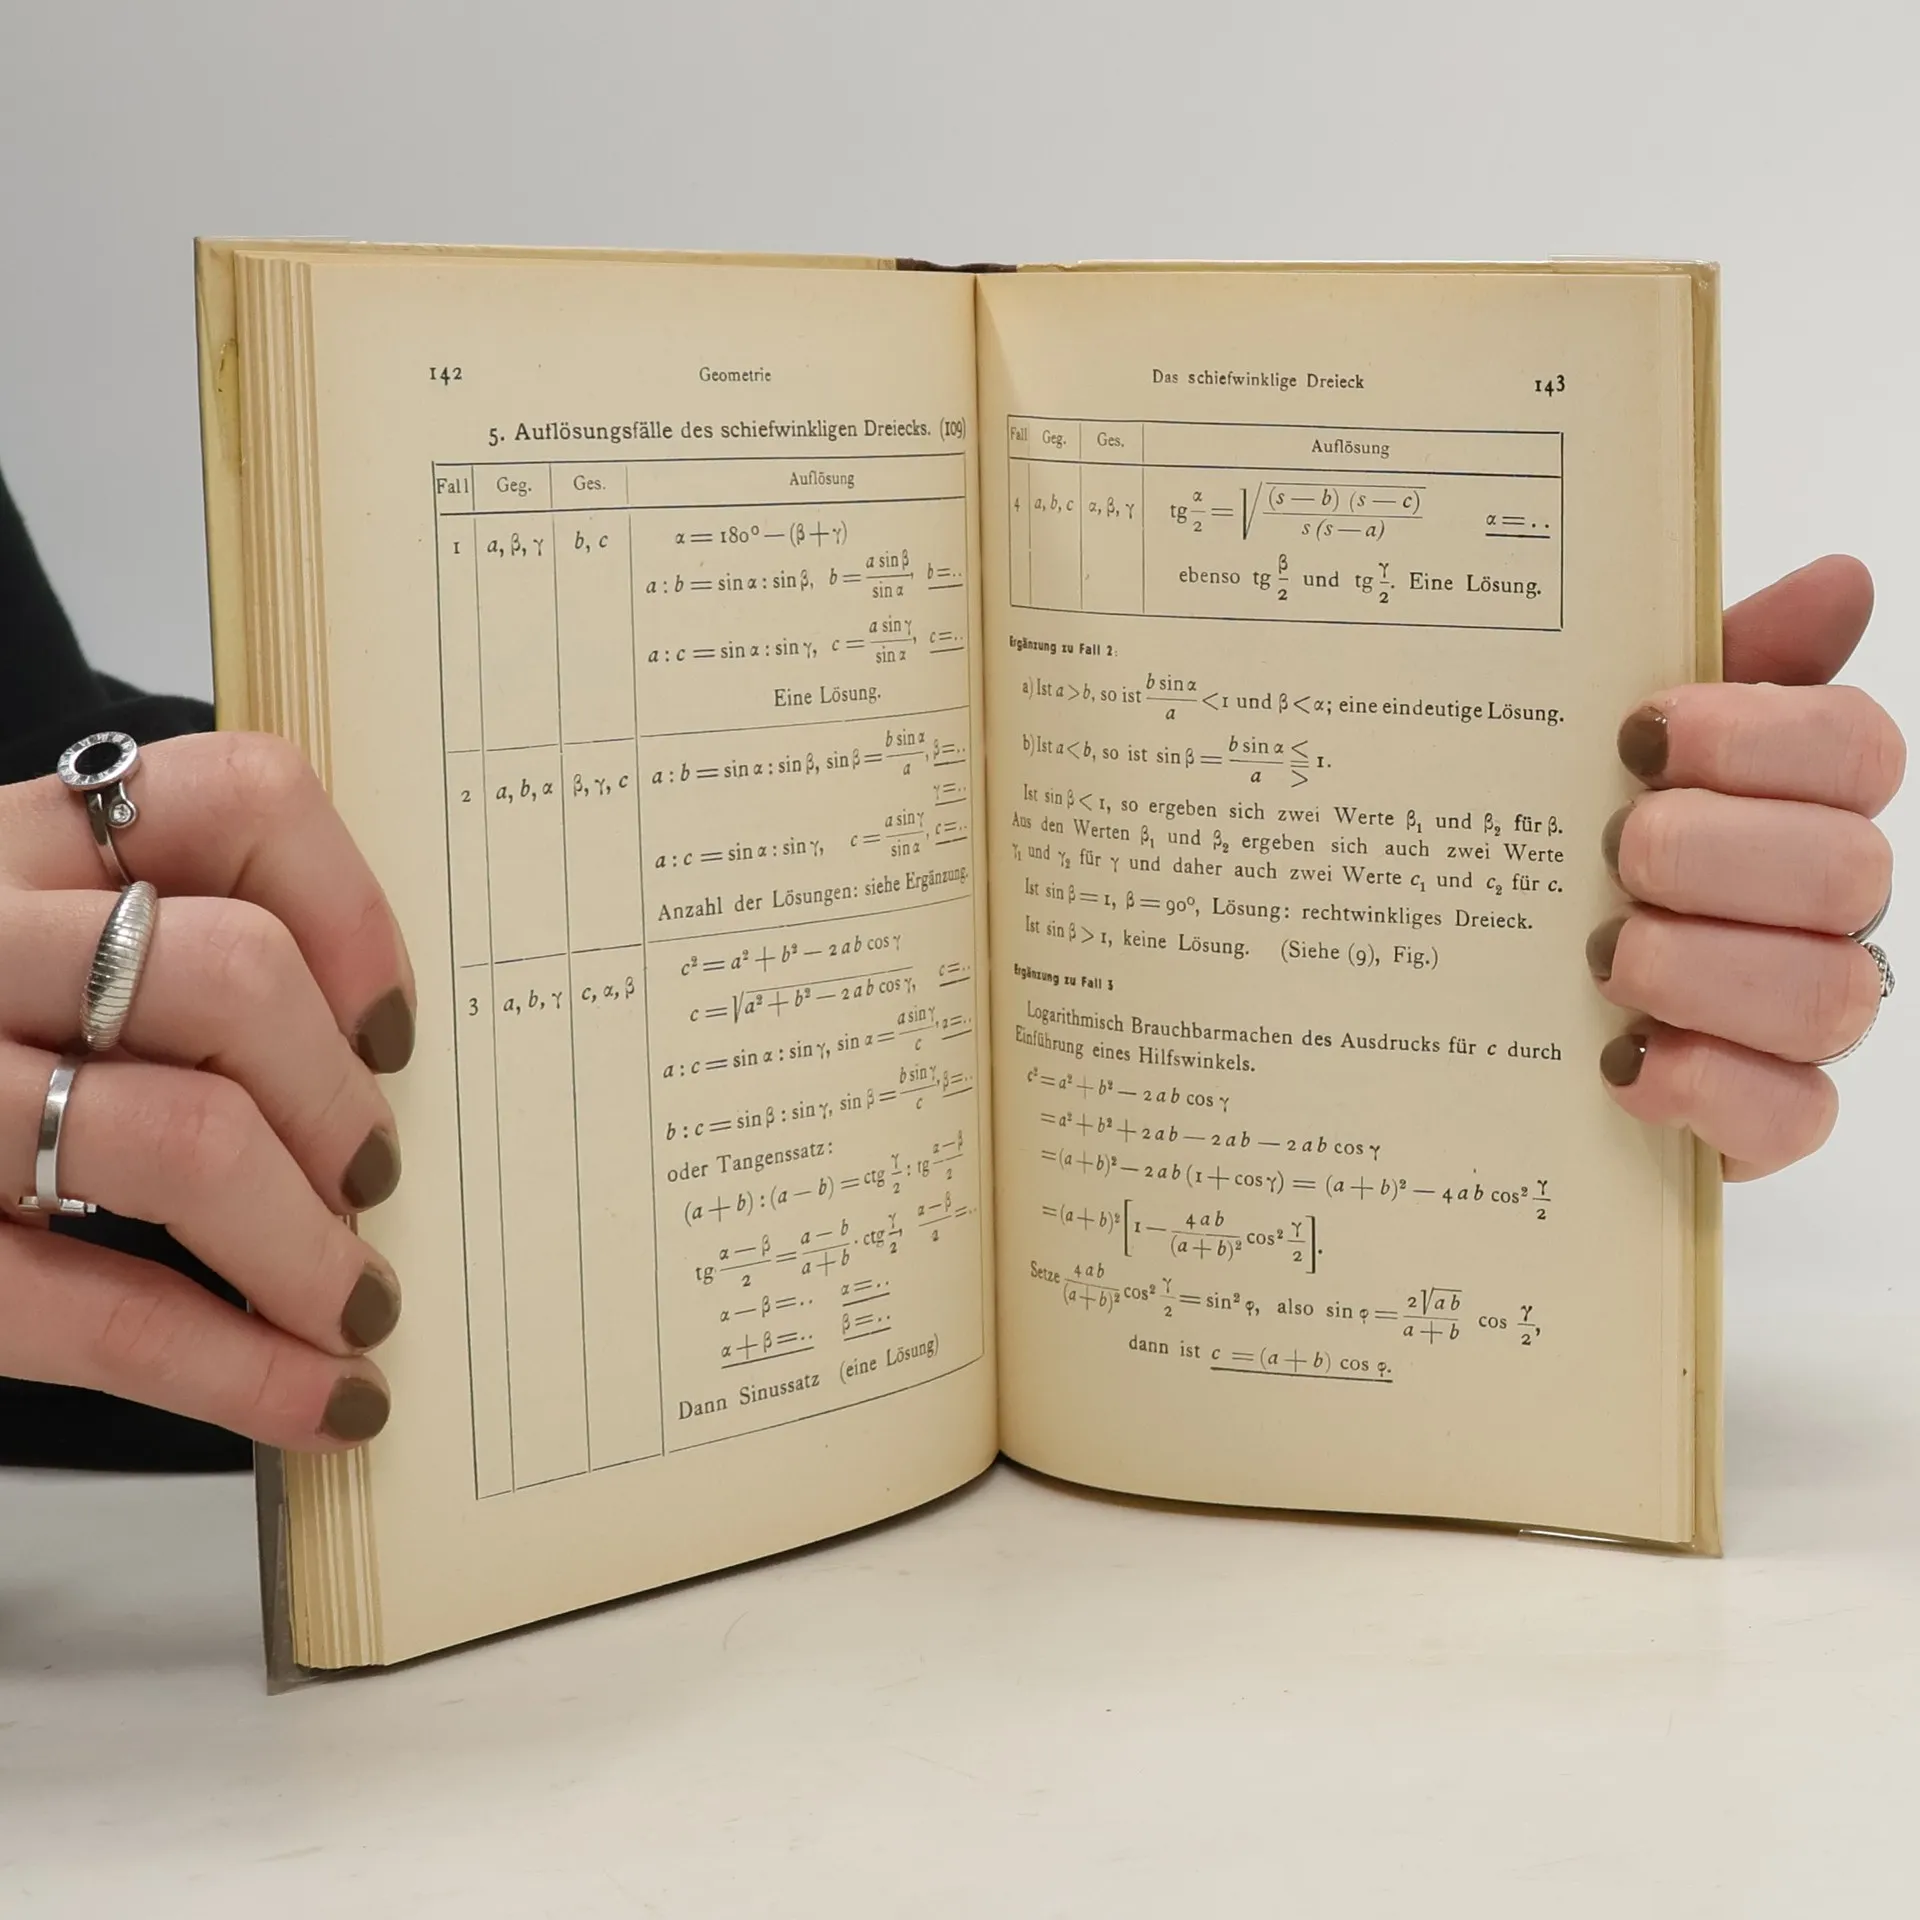 142
Geometrie
5. Auflösungsfälle des schiefwinkligen Dreiecks. (109)
Fall Geg. Ges. Auflösung
1 a, β, γ b, c α = 180° — (β + γ)
a : b = sin α : sin β, b = a sin β / sin α, b = ..
a : c = sin α : sin γ, c = a sin γ / sin α, c = ..
Eine Lösung.
2 a, b, α β, γ, c a : b = sin α : sin β, sin β = b sin α / a, β = ..
γ = ..
a : c = sin α : sin γ, c = a sin γ / sin α, c = ..
Anzahl der Lösungen: siehe Ergänzung.
3 a, b, γ c, α, β c² = a² + b² — 2 a b cos γ
c = √(a² + b² — 2 a b cos γ), c = ..
a : c = sin α : sin γ, sin α = a sin γ / c, α = ..
b : c = sin β : sin γ, sin β = b sin γ / c, β = ..
oder Tangenssatz:
(a + b) : (a — b) = ctg γ/2 : tg (α — β)/2
tg (α — β)/2 = (a — b)/(a + b) · ctg γ/2, (α — β)/2 = ..
α — β = .. α = ..
α + β = .. β = ..
Dann Sinussatz (eine Lösung)
Das schiefwinklige Dreieck
143
Fall Geg. Ges. Auflösung
4 a, b, c α, β, γ tg α/2 = √((s — b) (s — c) / s (s — a)) α = ..
ebenso tg β/2 und tg γ/2. Eine Lösung.
Ergänzung zu Fall 2:
a) Ist a > b, so ist b sin α / a < 1 und β < α; eine eindeutige Lösung.
b) Ist a < b, so ist sin β = b sin α / a ⪋ 1.
Ist sin β < 1, so ergeben sich zwei Werte β₁ und β₂ für β.
Aus den Werten β₁ und β₂ ergeben sich auch zwei Werte
γ₁ und γ₂ für γ und daher auch zwei Werte c₁ und c₂ für c.
Ist sin β = 1, β = 90°, Lösung: rechtwinkliges Dreieck.
Ist sin β > 1, keine Lösung. (Siehe (9), Fig.)
Ergänzung zu Fall 3
Logarithmisch Brauchbarmachen des Ausdrucks für c durch
Einführung eines Hilfswinkels.
c² = a² + b² — 2 a b cos γ
= a² + b² + 2 a b — 2 a b — 2 a b cos γ
= (a + b)² — 2 a b (1 + cos γ) = (a + b)² — 4 a b cos² γ/2
= (a + b)² [1 — 4 a b / (a + b)² cos² γ/2].
Setze 4 a b / (a + b)² cos² γ/2 = sin² φ, also sin φ = 2 √(a b) / (a + b) cos γ/2,
dann ist c = (a + b) cos φ.